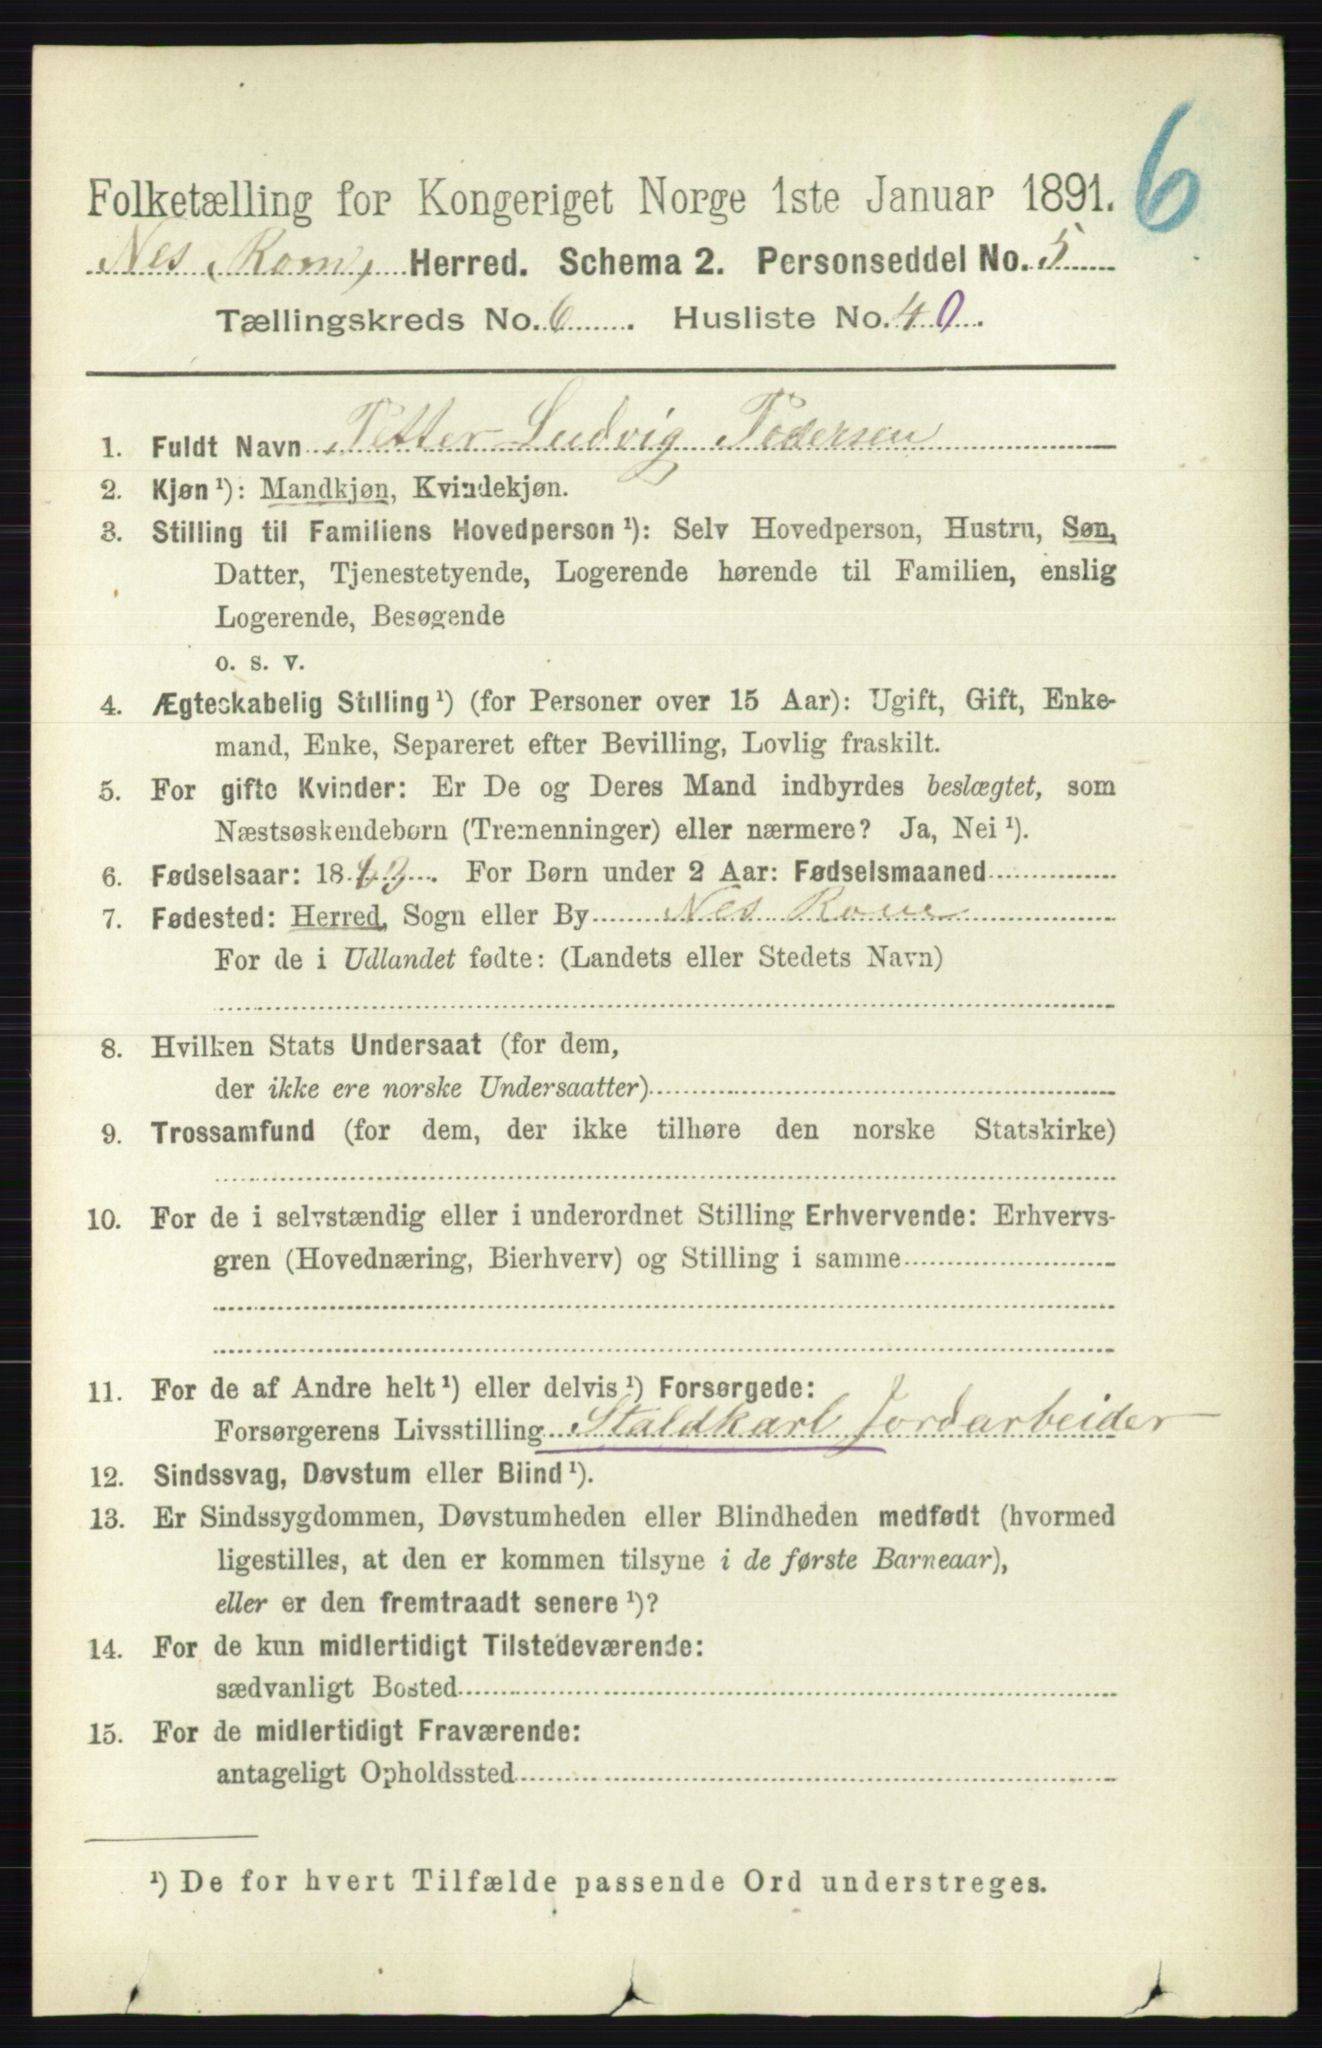 6
Folketælling for Kongeriget Norge 1ste Januar 1891.
Nes, Rom, Herred. Schema 2. Personseddel No. 5
Tællingskreds No. 6. Husliste No. 40.
1. Fuldt Navn Petter Ludvig Pedersen
2. Kjøn¹): Mandkjøn, Kvindekjøn.
3. Stilling til Familiens Hovedperson¹): Selv Hovedperson, Hustru, Søn,
Datter, Tjenestetyende, Logerende hørende til Familien, enslig
Logerende, Besøgende
o. s. v.
4. Ægteskabelig Stilling¹) (for Personer over 15 Aar): Ugift, Gift, Enke-
mand, Enke, Separeret efter Bevilling, Lovlig fraskilt.
5. For gifte Kvinder: Er De og Deres Mand indbyrdes beslægtet, som
Næstsøskendebørn (Tremenninger) eller nærmere? Ja, Nei¹).
6. Fødselsaar: 18 . For Børn under 2 Aar: Fødselsmaaned
7. Fødested: Herred, Sogn eller By Nes Rom
For de i Udlandet fødte: (Landets eller Stedets Navn)
8. Hvilken Stats Undersaat (for dem,
der ikke ere norske Undersaatter)
9. Trossamfund (for dem, der ikke tilhøre den norske Statskirke)
10. For de i selvstændig eller i underordnet Stilling Erhvervende: Erhvervs-
gren (Hovednæring, Bierhverv) og Stilling i samme
11. For de af Andre helt¹) eller delvis¹) Forsørgede:
Forsørgerens Livsstilling Staldkarl Jordarbeider
12. Sindssvag, Døvstum eller Blind¹).
13. Er Sindssygdommen, Døvstumheden eller Blindheden medfødt (hvormed
ligestilles, at den er kommen tilsyne i de første Barneaar),
eller er den fremtraadt senere¹)?
14. For de kun midlertidigt Tilstedeværende:
sædvanligt Bosted
15. For de midlertidigt Fraværende:
antageligt Opholdssted
¹) De for hvert Tilfælde passende Ord understreges.